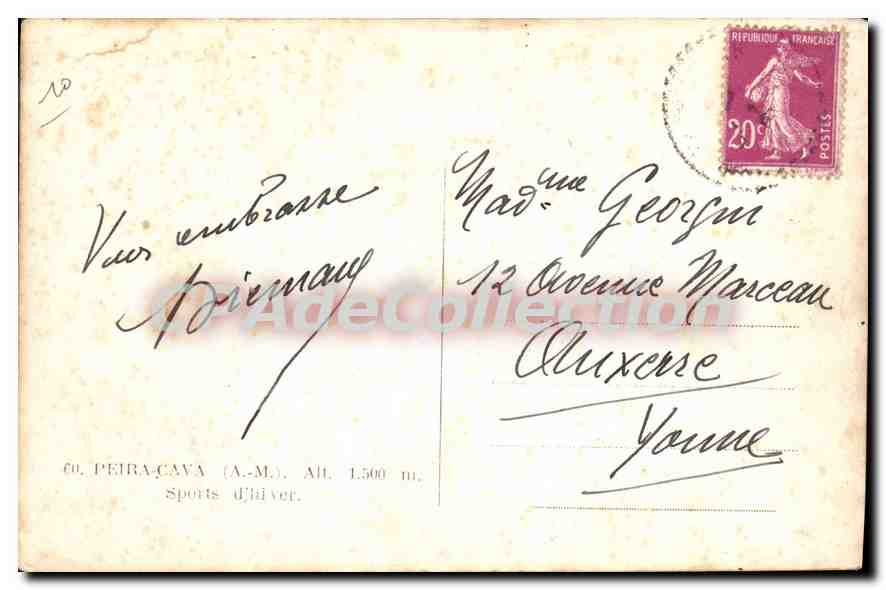 10
Vous embrasse
60. PEIRA-CAVA (A.-M.). Alt. 1.500 m.
Sports d'hiver.
REPUBLIQUE FRANÇAISE
20c
POSTES
Mad.me Georgin
12 Avenue Marceau
Auxerre
Yonne
CPAdeCollection